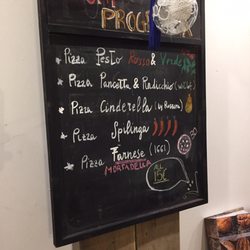 PROG
Pizza Pesto Rosso & Verde
Pizza Pancetta & Radicchio
Pizza Cinderella
Pizza Spilinga
Pizza Farnese (IGG)
MORTADELLA
ALL
15€